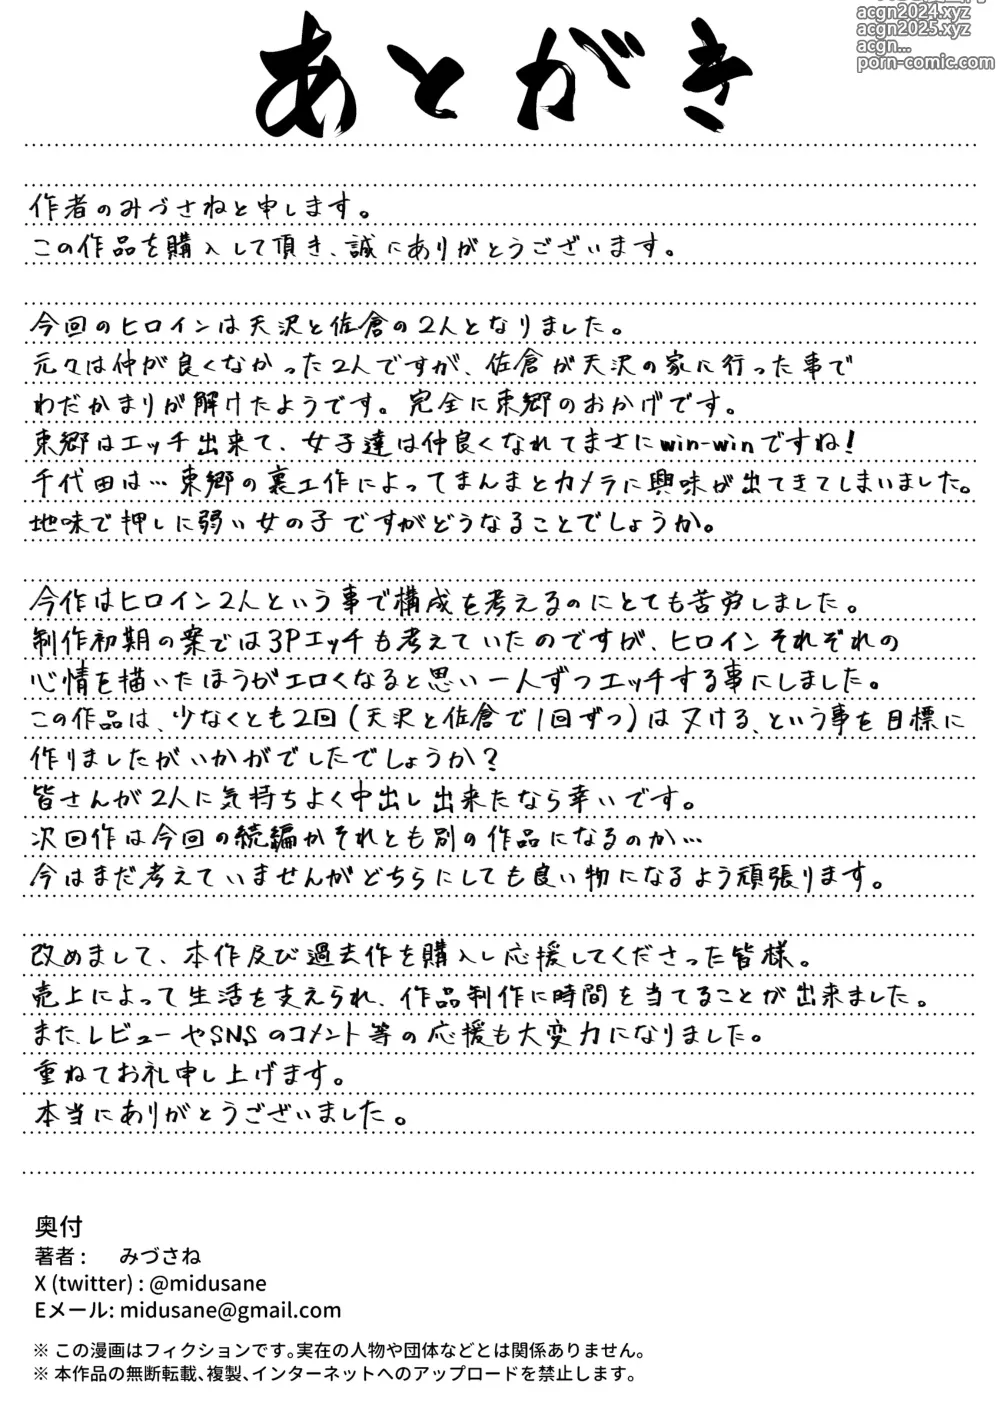 acgn2024.xyz
acgn2025.xyz
acgn...
porn-comic.com
あとがき
作者のみづさねと申します。
この作品を購入して頂き、誠にありがとうございます。
今回のヒロインは天沢と佐倉の2人となりました。
元々は仲が良くなかった2人ですが、佐倉が天沢の家に行った事で
わだかまりが解けたようです。完全に東郷のおかげです。
東郷はエッチ出来て、女子達は仲良くなれてまさにwin-winですね!
千代田は…東郷の裏工作によってまんまとカメラに興味が出てきてしまいました。
地味で押しに弱い女の子ですがどうなることでしょうか。
今作はヒロイン2人という事で構成を考えるのにとても苦労しました。
制作初期の案では3Pエッチも考えていたのですが、ヒロインそれぞれの
心情を描いたほうがエロくなると思い一人ずつエッチする事にしました。
この作品は、少なくとも2回(天沢と佐倉で1回ずつ)はヌける、という事を目標に
作りましたがいかがでしたでしょうか?
皆さんが2人に気持ちよく中出し出来たなら幸いです。
次回作は今回の続編かそれとも別の作品になるのか…
今はまだ考えていませんがどちらにしても良い物になるよう頑張ります。
改めまして、本作及び過去作を購入し応援してくださった皆様。
売上によって生活を支えられ、作品制作に時間を当てることが出来ました。
また、レビューやSNSのコメント等の応援も大変力になりました。
重ねてお礼申し上げます。
本当にありがとうございました。
奥付
著者: みづさね
X (twitter) : @midusane
Eメール: midusane@gmail.com
※ この漫画はフィクションです。実在の人物や団体などとは関係ありません。
※ 本作品の無断転載、複製、インターネットへのアップロードを禁止します。